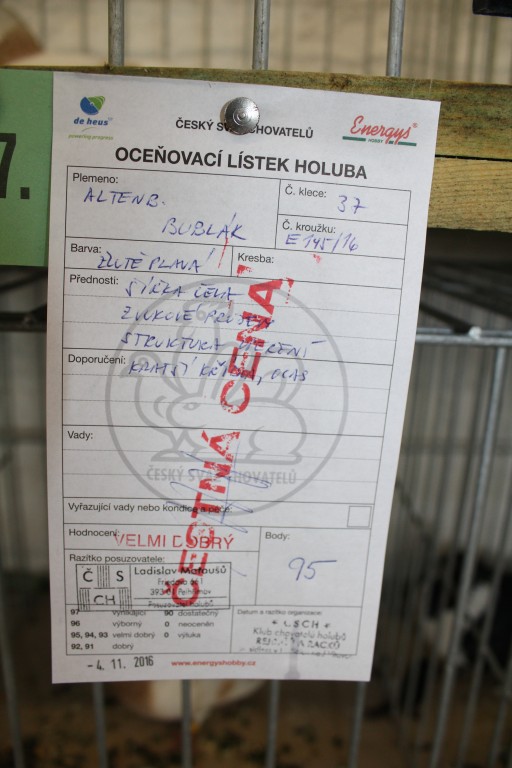 7.
de heus
powering progress
ČESKÝ SVAZ CHOVATELŮ
Energys
HOBBY
OCEŇOVACÍ LÍSTEK HOLUBA
Plemeno:
ALTENB.
BUBLÁK
Č. klece: 37
Č. kroužku:
E 145/16
Barva: ŽLUTĚ PLAVÁ
Kresba:
Přednosti: ŠÍŘKA ČELA
ZVUKOVÉ PROJEVY
STRUKTURA OPEŘENÍ
Doporučení: KRATŠÍ KŘÍDLA, OCAS
Vady:
ČESKÝ SVAZ CHOVATELŮ
ČESTNÁ CENA
Vyřazující vady nebo kondice a péče:
Hodnocení: VELMI DOBRÝ
Body:
95
Razítko posuzovatele:
Č S
CH
Ladislav Matoušů
97 vynikající 90 dostatečný
96 výborný 0 neoceněn
95, 94, 93 velmi dobrý 0 výluka
92, 91 dobrý
Datum a razítko organizace:
ČSCH
Klub chovatelů holubů
-4. 11. 2016
www.energyshobby.cz